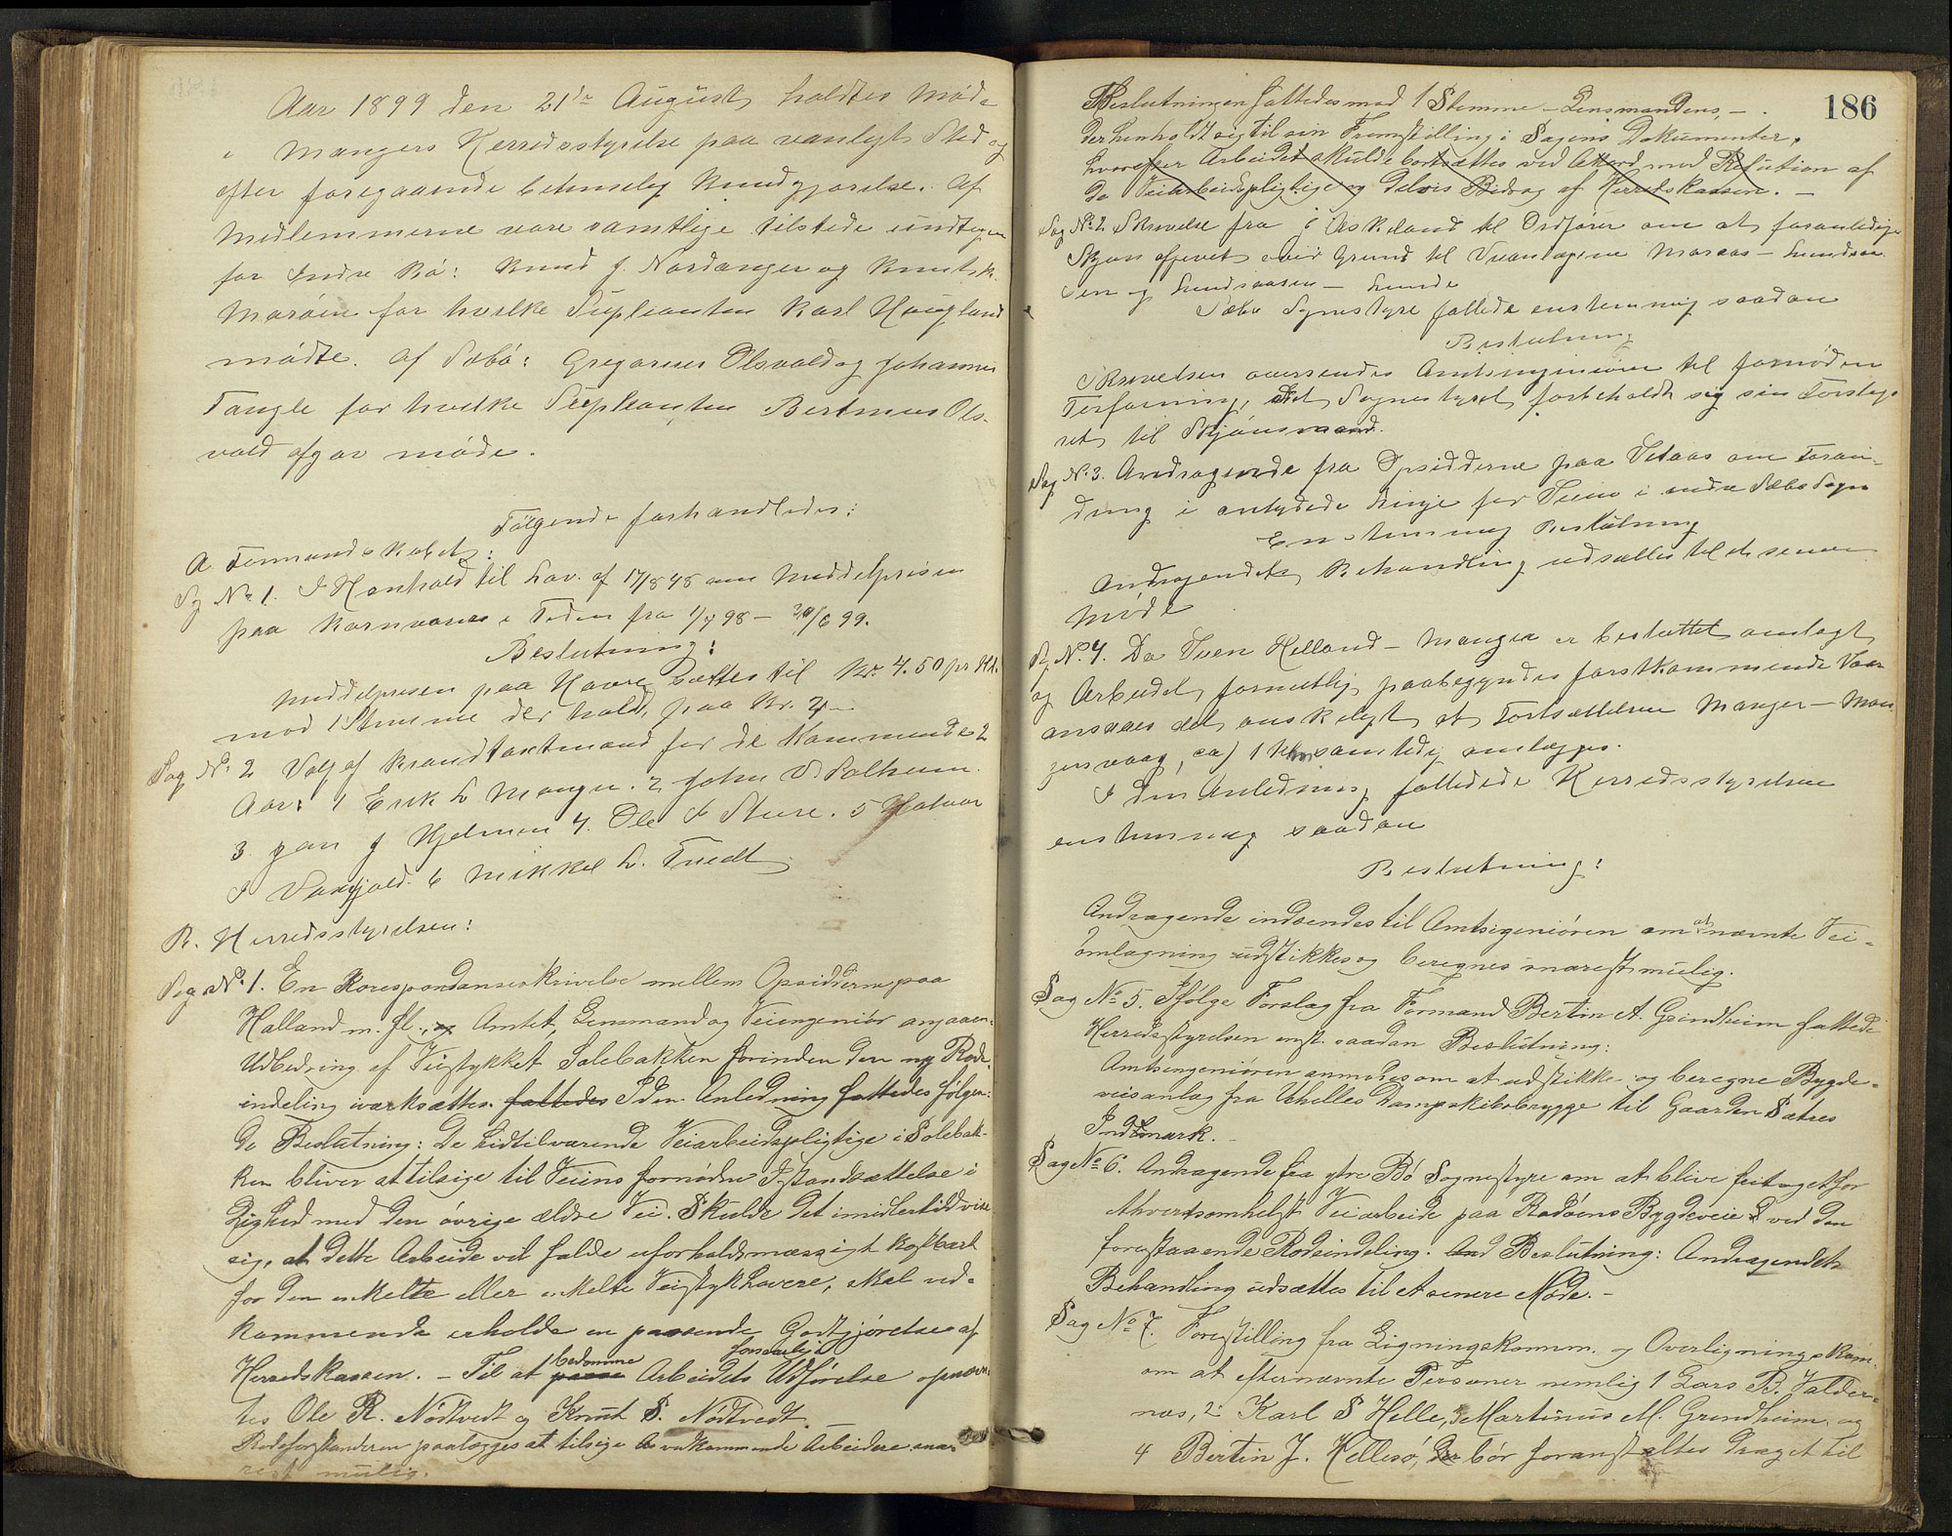 Aar 1899 den 21de August holdtes Møde
i Mangers Herredsstyrelse paa vanligt Sted og
efter foregaaende behørig Kundgjørelse. Af
Medlemmerne vare samtlige tilstede undtagen
for Indre Bø: Knud J. Nordanger og Knut K.
Marøen for hvilke Suplianten Karl Haugland
mødte. Af Sæbø: Gregorius Olsvold og Johannes
Tangle for hvilke Suplianten Bertinius Ols-
vold afgav møde.
Følgende forhandledes:
A Formandskabet:
Sag No 1. I Henhold til Lov. af 17/8 48 om Middelprisen
paa Kornvarer i Tiden fra 1/7 98 – 30/6 99.
Beslutning:
Middelprisen paa Havre sættes til Kr. 4.50 pr Hl.
mod 1 Stemme der holdt paa Kr. 4 –
Sag No 2 Valg af Brandtaxtmænd for de kommende 2
Aar: 1 Erik L Manger. 2 Johan D Solheim
3 Jan J Hjelmen 4. Ole I. Sture. 5 Halvor
I Vaxfjold. 6 Mikkel L. Tvedt
B. Herredsstyrelsen:
Sag No 1. En Korespondanseskrivelse mellem Opsidderne paa
Halland m. fl., Amtet, Lensmand og Veiingeniør angaaen-
Udbedring af Veistykket Solebakken forinden den ny Rode-
indeling iværksættes. fattedes I den Anledning fattedes følgen-
de Beslutning: De hidtilværende Veiarbeidspligtige i Solebak-
ken bliver at tilsige til Veiens fornødne Istandsættelse i
Lighed med den øvrige ældre Vei. Skulde det imidlertid vise
sig, at dette Arbeide vil falde uforholdsmæssigt kostbart
for den enkelte eller enkelte Veistykhavere, skal ved-
kommende erholde en passende Godtgjørelse af
Herredskassen. – Til at bedømme Arbeidets forsvarlige Udførelse opnævn-
tes Ole R. Nødtvedt og Knut S. Nødtvedt. –
Rodeforstanderen paalægges at tilsige de vedkommende Arbeidere snar-
rest mulig.
186
Beslutningen fattedes mod 1 Stemme – Lensmandens, –
der henholdt sig til sin Fremstilling i Sagens Dokumenter,
hvorefter Arbeidet skulde bortsættes ved Akkord med Relution af
de Veiarbeidspligtige og Delvis Bidrag af Herredskassen. –
Sag No 2 Skrivelse fra J Askeland til Ordfører om at foranledige
Skjøn afgivet over Grund til Veianlægene Maraas – Lundsaa-
sen og Lundsaasen – Lunde
Sæbø Sognestyre fattede enstemmig saadan
Beslutning
Skrivelsen oversendes Amtsingeniøren til fornøden
Forføining, idet Sognestyret forbeholdt sig sin Forslags-
ret til Skjønsmænd.
Sag No 3. Andragende fra Opsidderne paa Titaas om Foran-
dring i antydede Linje for Veien i indre Sæbø Sogn
Enstemmig Beslutning
Andragendets Behandling udsættes til et senere
Møde
Sag No. 4. Da Veien Helland – Manger er besluttet omlagt
og Arbeidet formentlig paabegyndes førstkommende Vaar
ansaaes det ønskeligt at Fortsættelsen Manger – Man-
gersvaag, ca 1 Km samtidig omlægges.
I den Anledning fattede Herredsstyrelsen
enstemmig saadan
Beslutning:
Andragende indsendes til Amtsigeniøren om at nævnte Vei-
omlægning udstikkes og beregnes snarest mulig.
Sag No 5. Ifølge Forslag fra Formand Bertin A. Grindheim fattede
Herredsstyrelsen enst. saadan Beslutning:
Amtsingeniøren anmodes om at udstikke og beregne Bygde-
veisanlæg fra Uthelles Dampskibsbrygge til Gaarden Sætres
Indmark. –
Sag No 6. Andragende fra ytre Bø Sognestyre om at blive fritaget for
ethvertsomhelst Veiarbeide paa Radøens Bygdeveie ved den
forestaaende Rodeindeling. Beslutning: Andragendets
Behandling udsættes til et senere Møde. –
Sag No 7. Forestilling fra Ligningskomm. og Overligningskom-
om at efternævnte Personer nemlig 1 Lars B. Valder-
nes, 2 Karl S Helle, 3 Martinus M. Grindheim, og
4 Bertin J. Hellesø, der bør foranstaltes draget til